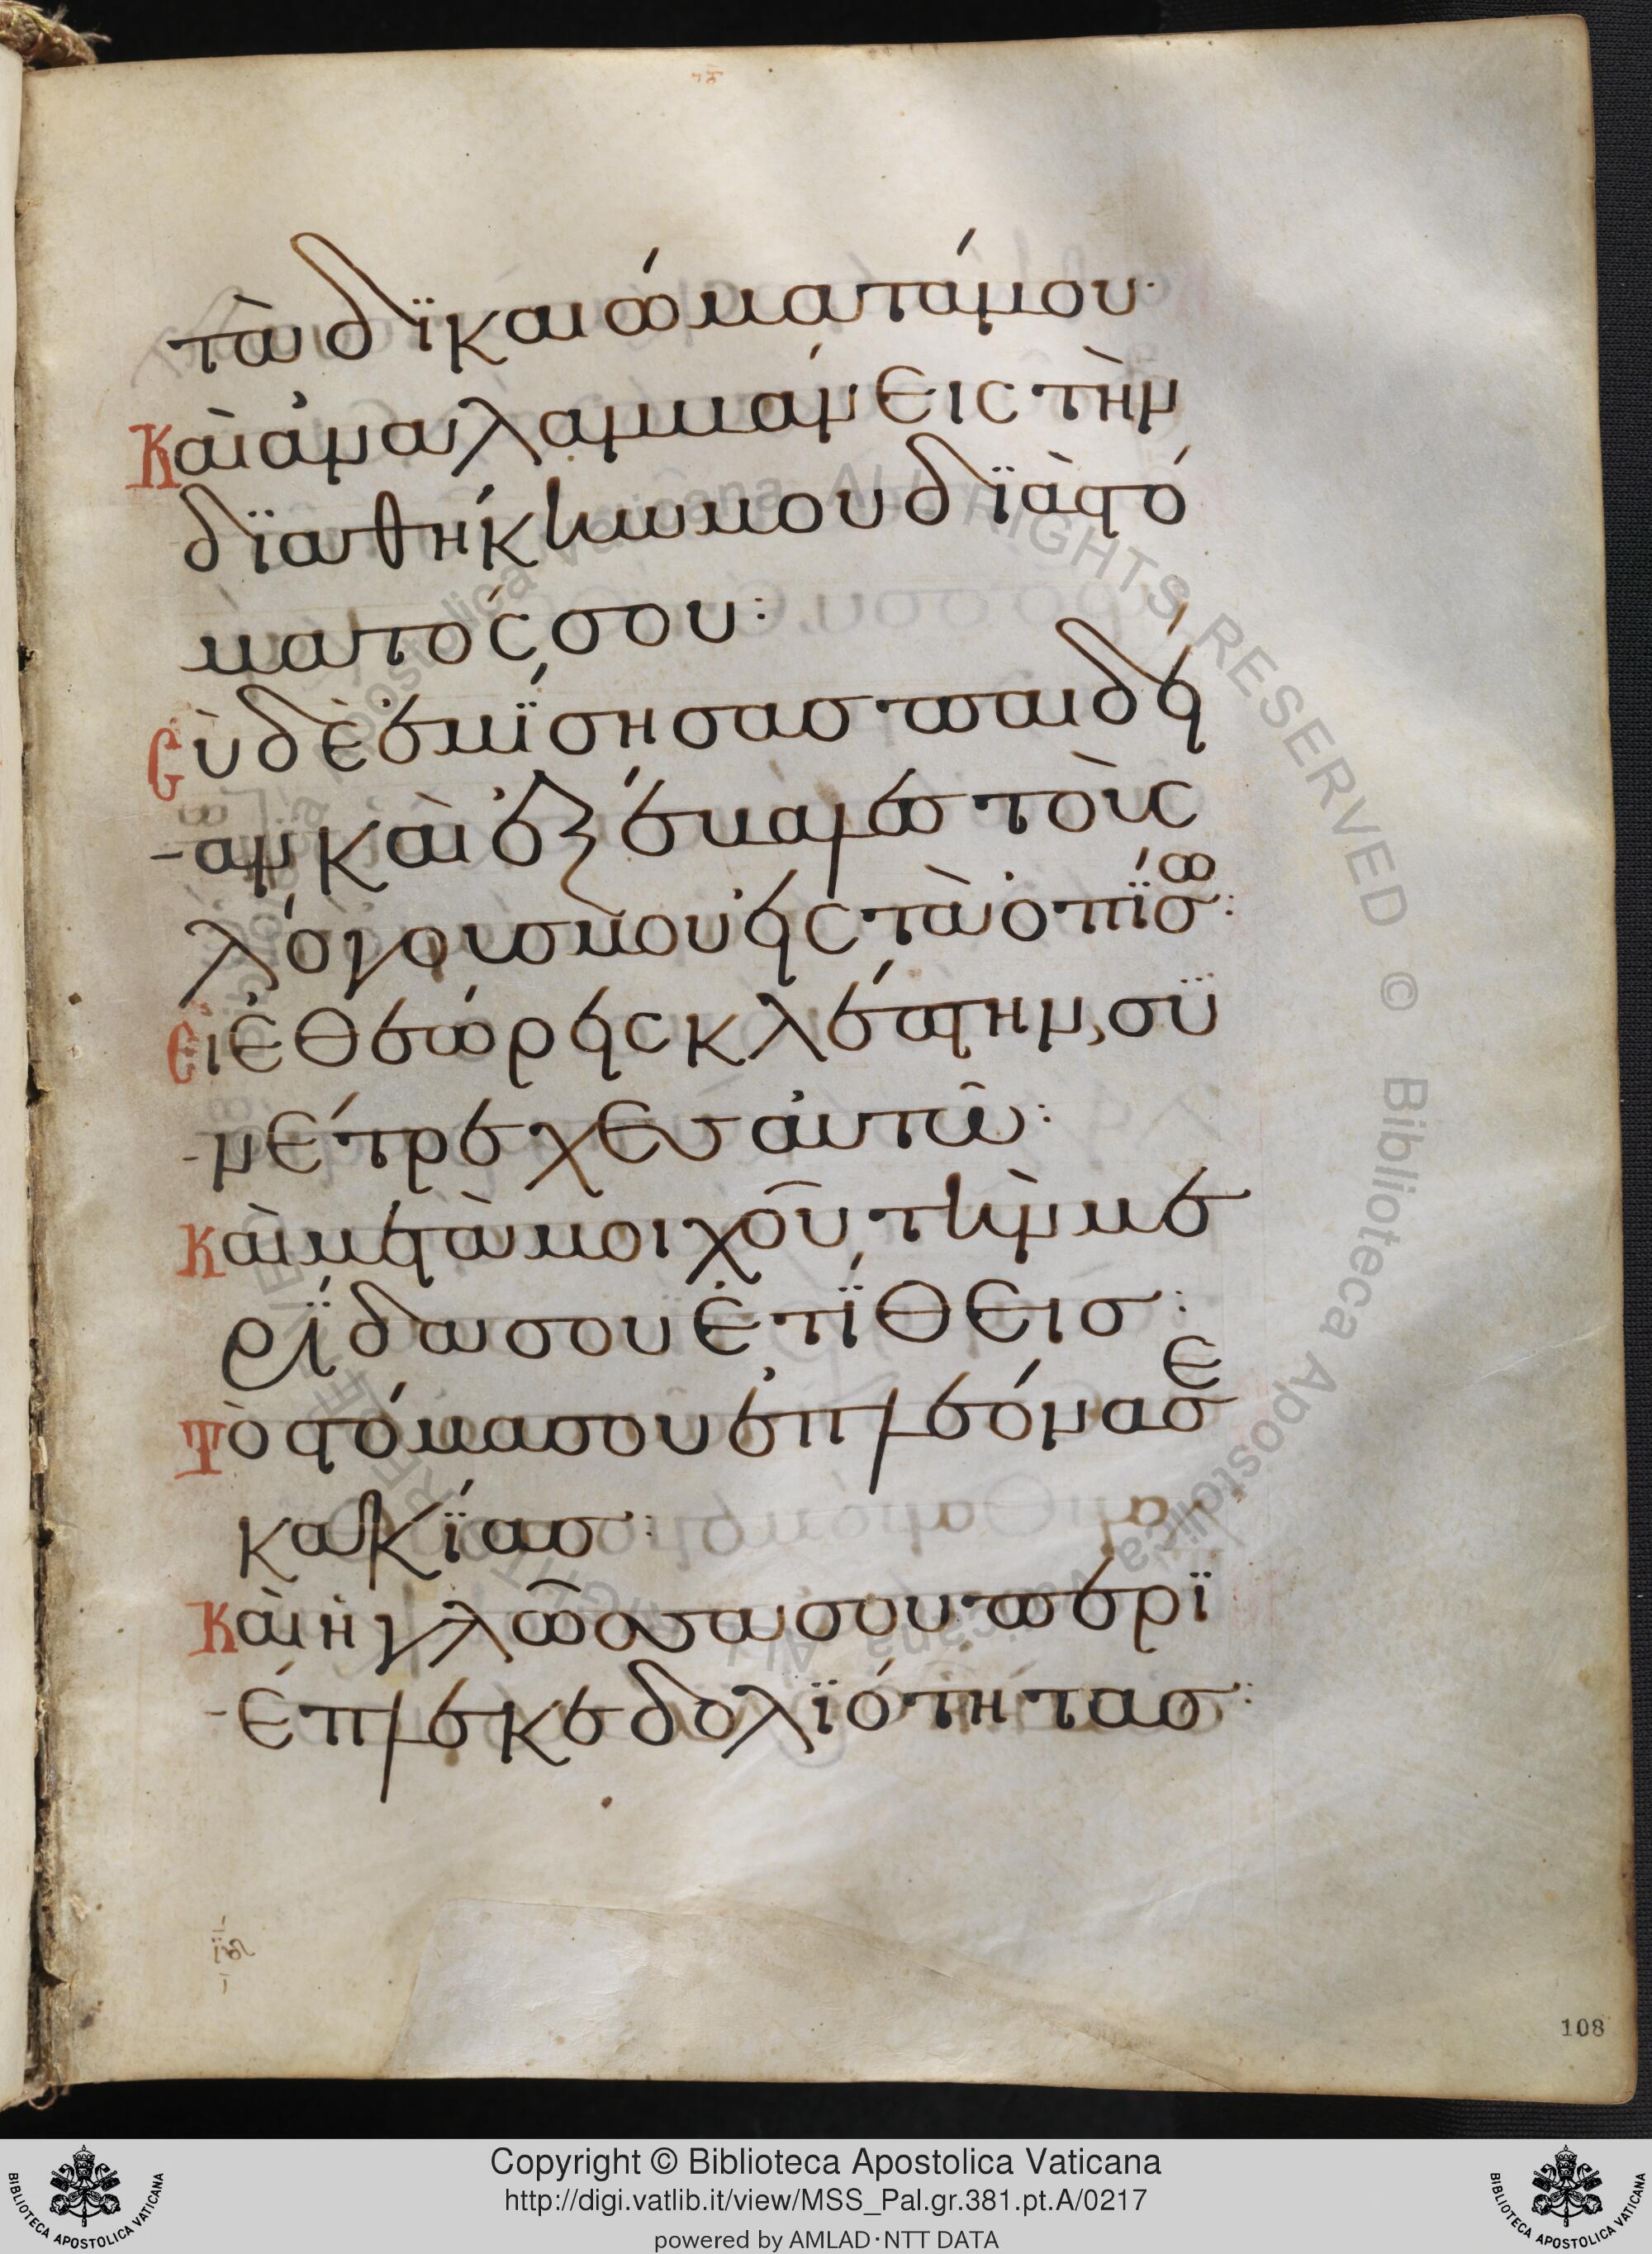 τὰ δϊκαιώματάμου·
Καὶ ἀναλαμβάνεις τὴν
δϊαθήκην μου δϊὰ στό
ματός σου:
Σὺ δὲ ἐμίσησας παιδεί
αν καὶ ἐξέβαλες τοὺς
λόγους μου εἰς τὰ ὀπίσω:
Εἰ ἐθεώρεις κλέπτην, συ
νέτρεχες αὐτῶ:
Καὶ μετὰ μοιχοῦ τὴν με
ρίδα σου ἐτίθεις:
Τὸ στόμα σου ἐπλεόνασε
κακίας:
Καὶ ἡ γλῶσσα σου περϊ
έπλεκε δολϊότητας:
108
Copyright © Biblioteca Apostolica Vaticana
http://digi.vatlib.it/view/MSS_Pal.gr.381.pt.A/0217
powered by AMLAD·NTT DATA
BIBLIOTECA APOSTOLICA VATICANA
BIBLIOTECA APOSTOLICA VATICANA